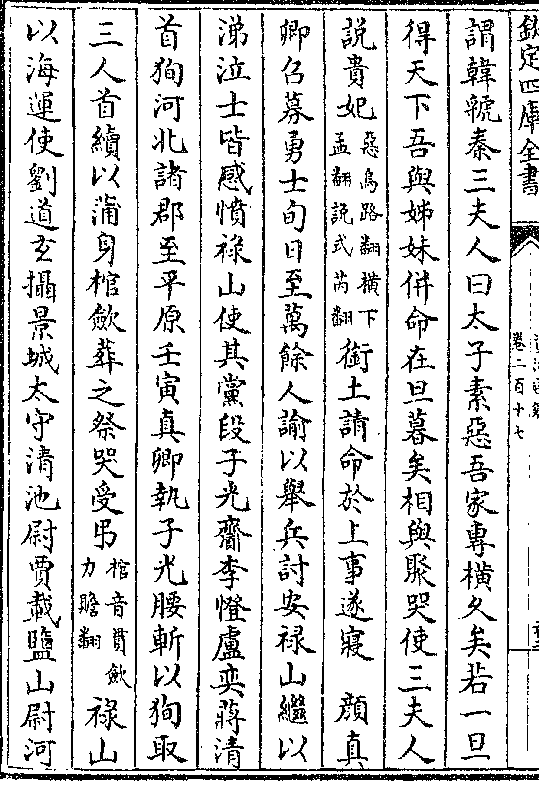 欽定四庫全書
卷二百十七
謂韓虢秦三夫人曰太子素惡吾家專橫久矣若一旦
得天下吾與姊妹併命在旦暮矣相與聚哭使三夫人
說貴妃惡烏路翻橫下孟翻說式芮翻銜土請命於上事遂寢 顔真
卿召募勇士旬日至萬餘人諭以舉兵討安禄山繼以
涕泣士皆感憤禄山使其黨段子光齎李憕盧奕蔣清
首狥河北諸郡至平原壬寅真卿執子光腰斬以狥取
三人首續以蒲身棺歛葬之祭哭受弔棺音貫歛力贍翻 禄山
以海運使劉道玄攝景城太守清池尉賈載鹽山尉河